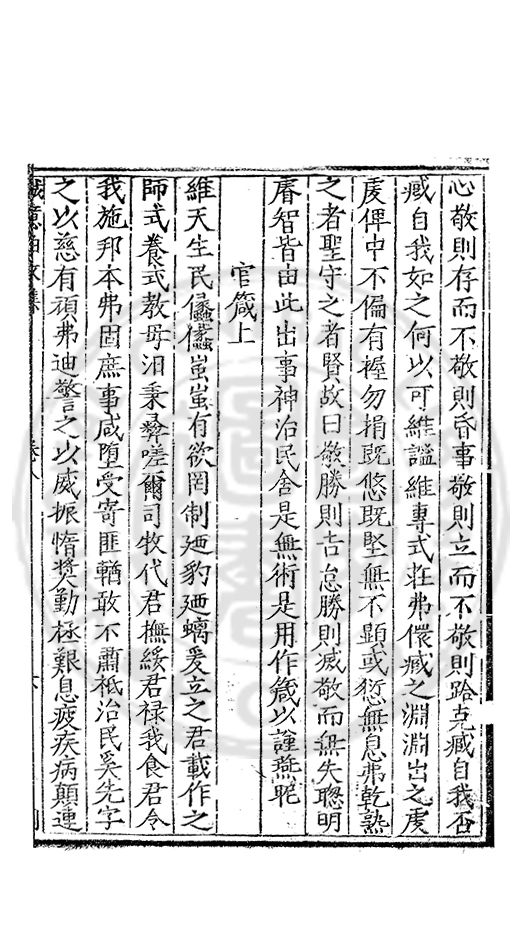 心敬則存而不敬則昏事敬則立而不敬則跲克臧自我否
臧自我如之何以可維謐維專式莊弗儇臧之淵淵出之虔
虔俾中不偏有握勿捐既悠既堅無不顯或愆無息弗乾熟
之者聖守之者賢故曰敬勝則吉怠勝則滅敬而無失聰明
睿智皆由此出事神治民舍是無術是用作箴以謹燕昵
官箴上
維天生民儡儡蚩蚩有欲罔制廼豹廼螭爰立之君載作之
師式養式教毋汨秉彝嗟爾司牧代君撫綏君祿我食君令
我施邦本弗固庶事咸墮受寄匪輶敢不肅祗治民奚先字
之以慈有頑弗迪警之以威振惰獎勤極艱息疲疾病顛連
卷八